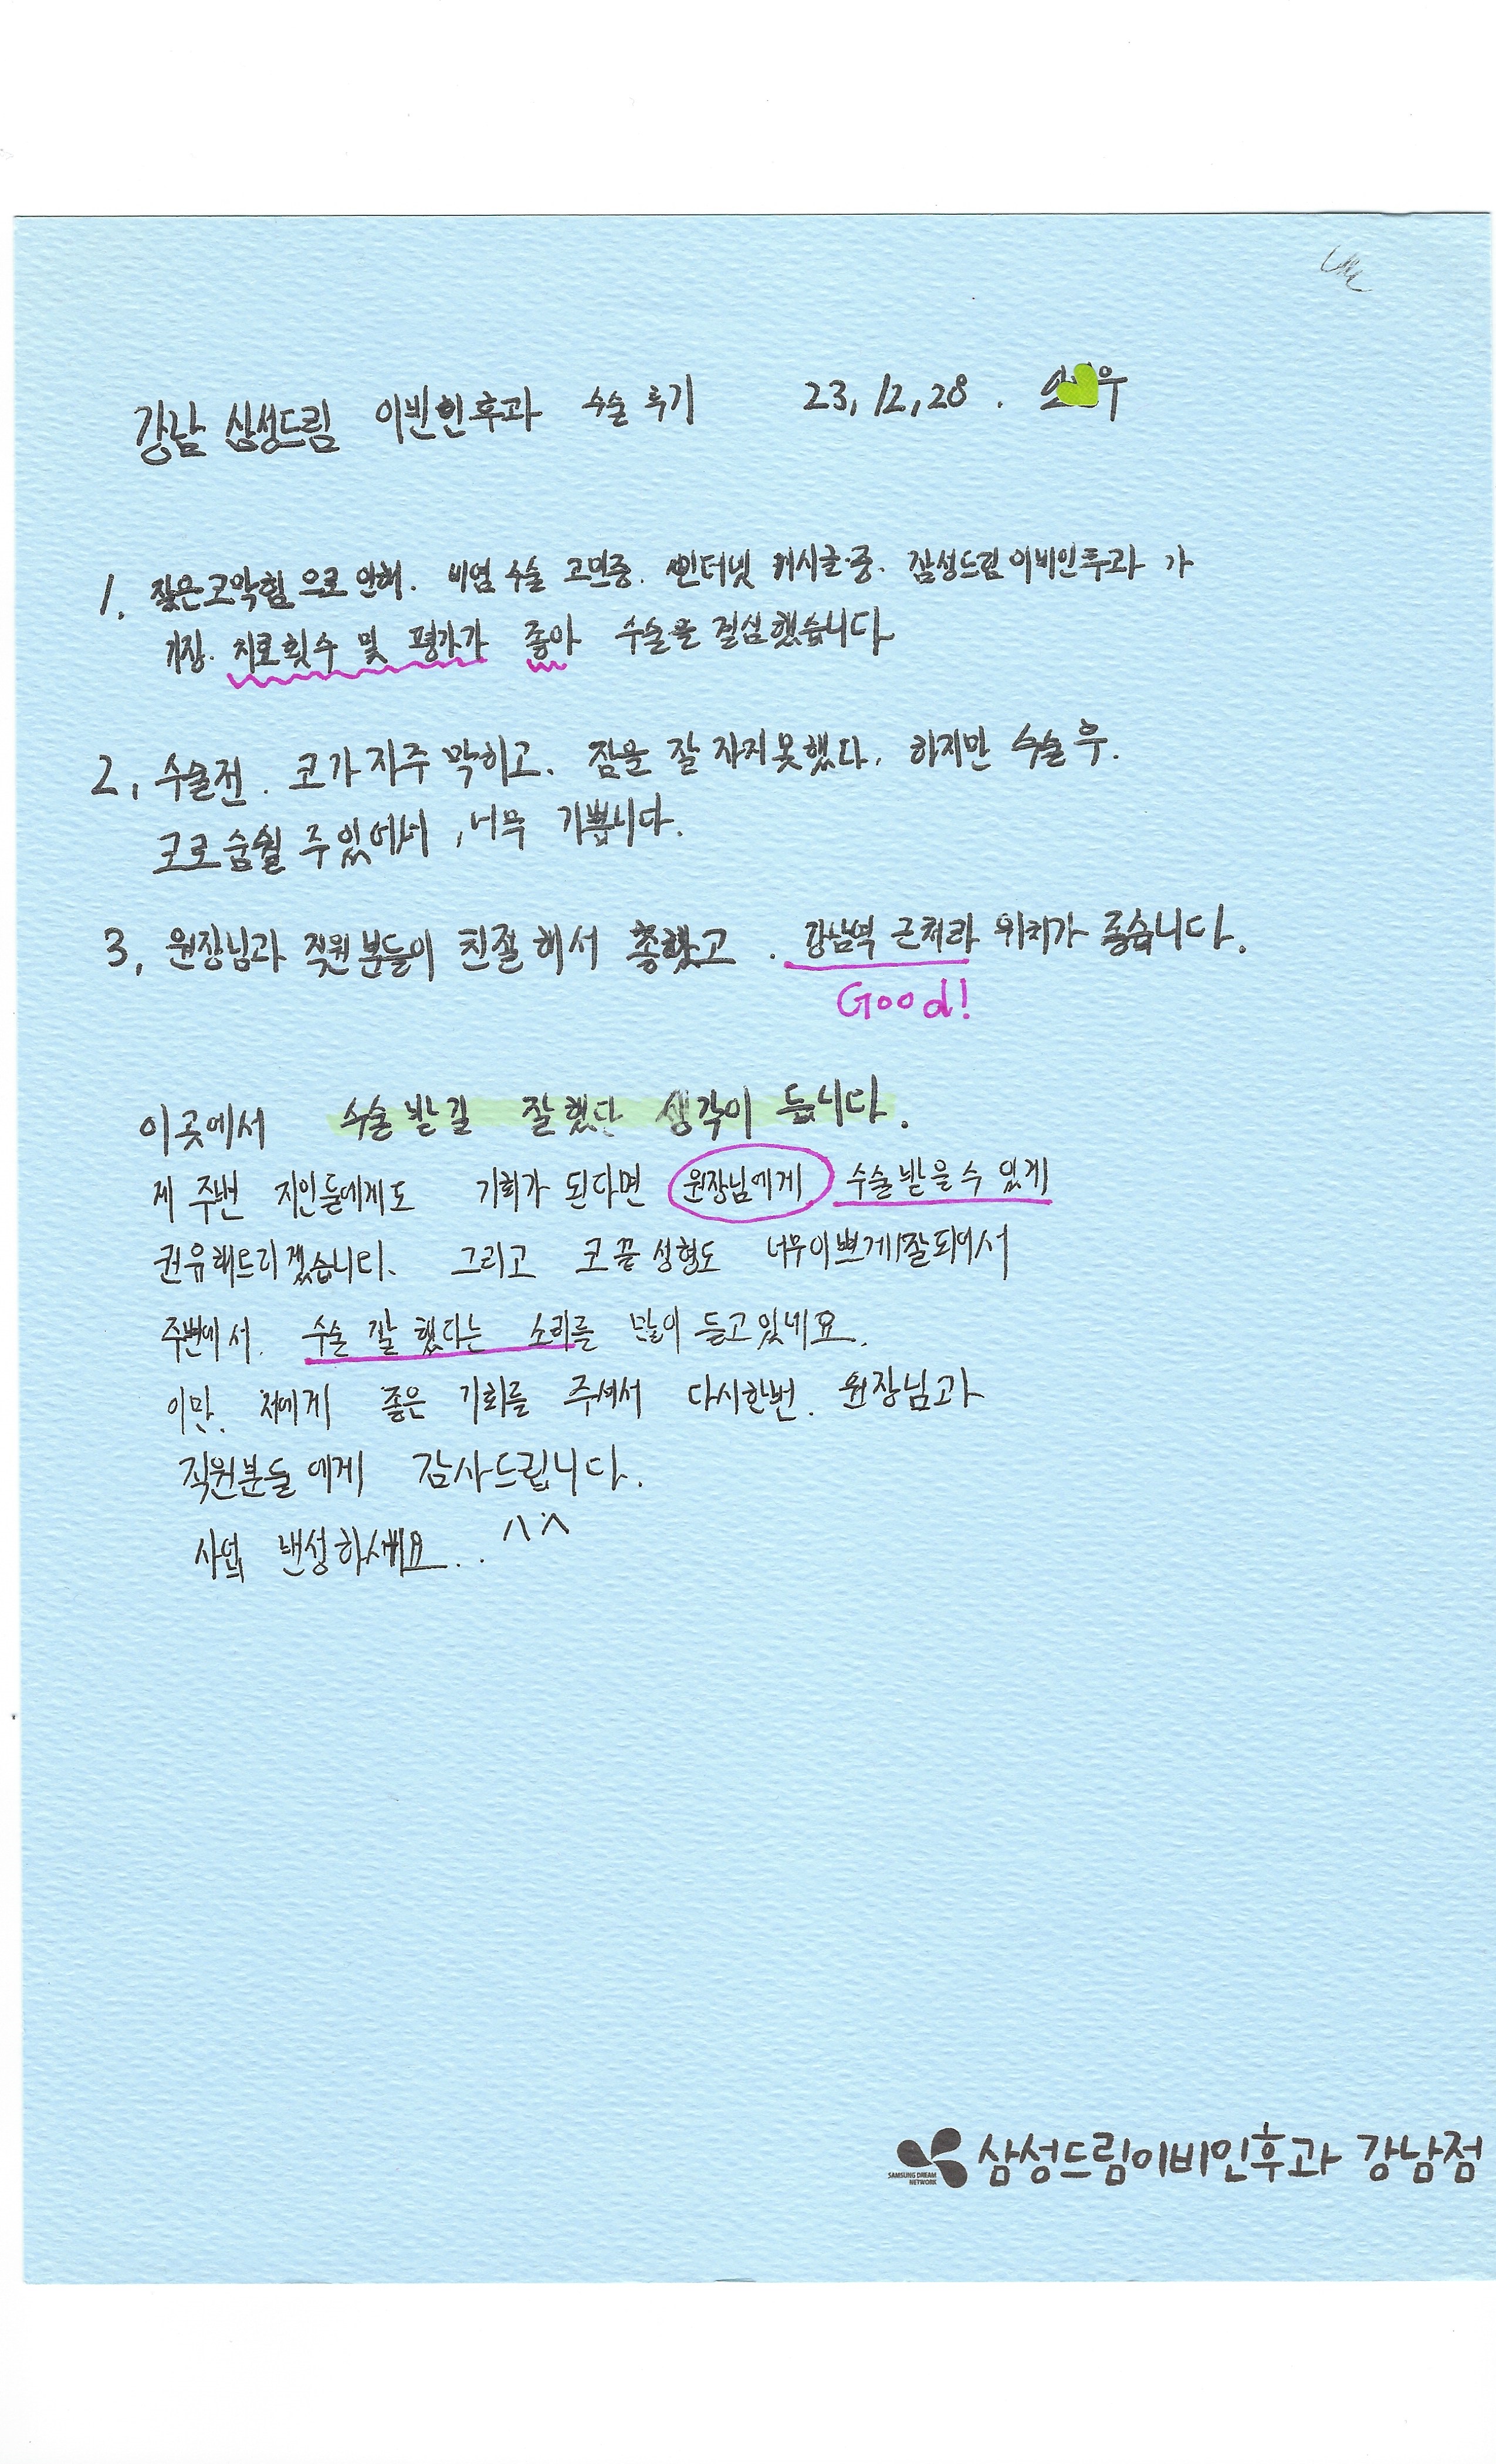 강남 삼성드림 이빈인후과 수술 후기 23, 12, 28.
1. 잦은코막힘으로 인해. 비염 수술 고민중. 인터넷 게시글 중. 삼성드림이비인후과 가
가장. 치료횟수 및 평가가 좋아 수술을 결심했습니다
2, 수술전. 코가 자주 막히고. 잠을 잘 자지못했다. 하지만 수술 후.
코로 숨쉴 수 있어서, 너무 기쁩니다.
3, 원장님과 직원분들이 친절해서 좋았고. 강남역 근처라 위치가 좋습니다.
Good!
이곳에서 수술 받길 잘했단 생각이 듭니다.
제 주변 지인들에게도 기회가 된다면 원장님에게 수술 받을 수 있게
권유해드리겠습니다. 그리고 코 끝 성형도 너무이쁘게 잘되어서
주변에서. 수술 잘 했다는 소리를 많이 듣고있네요.
이만. 저에게 좋은 기회를 주셔서 다시한번. 원장님과
직원분들에게 감사드립니다.
사업 번성하세요.. ^^
SAMSUNG DREAM NETWORK 삼성드림이비인후과 강남점